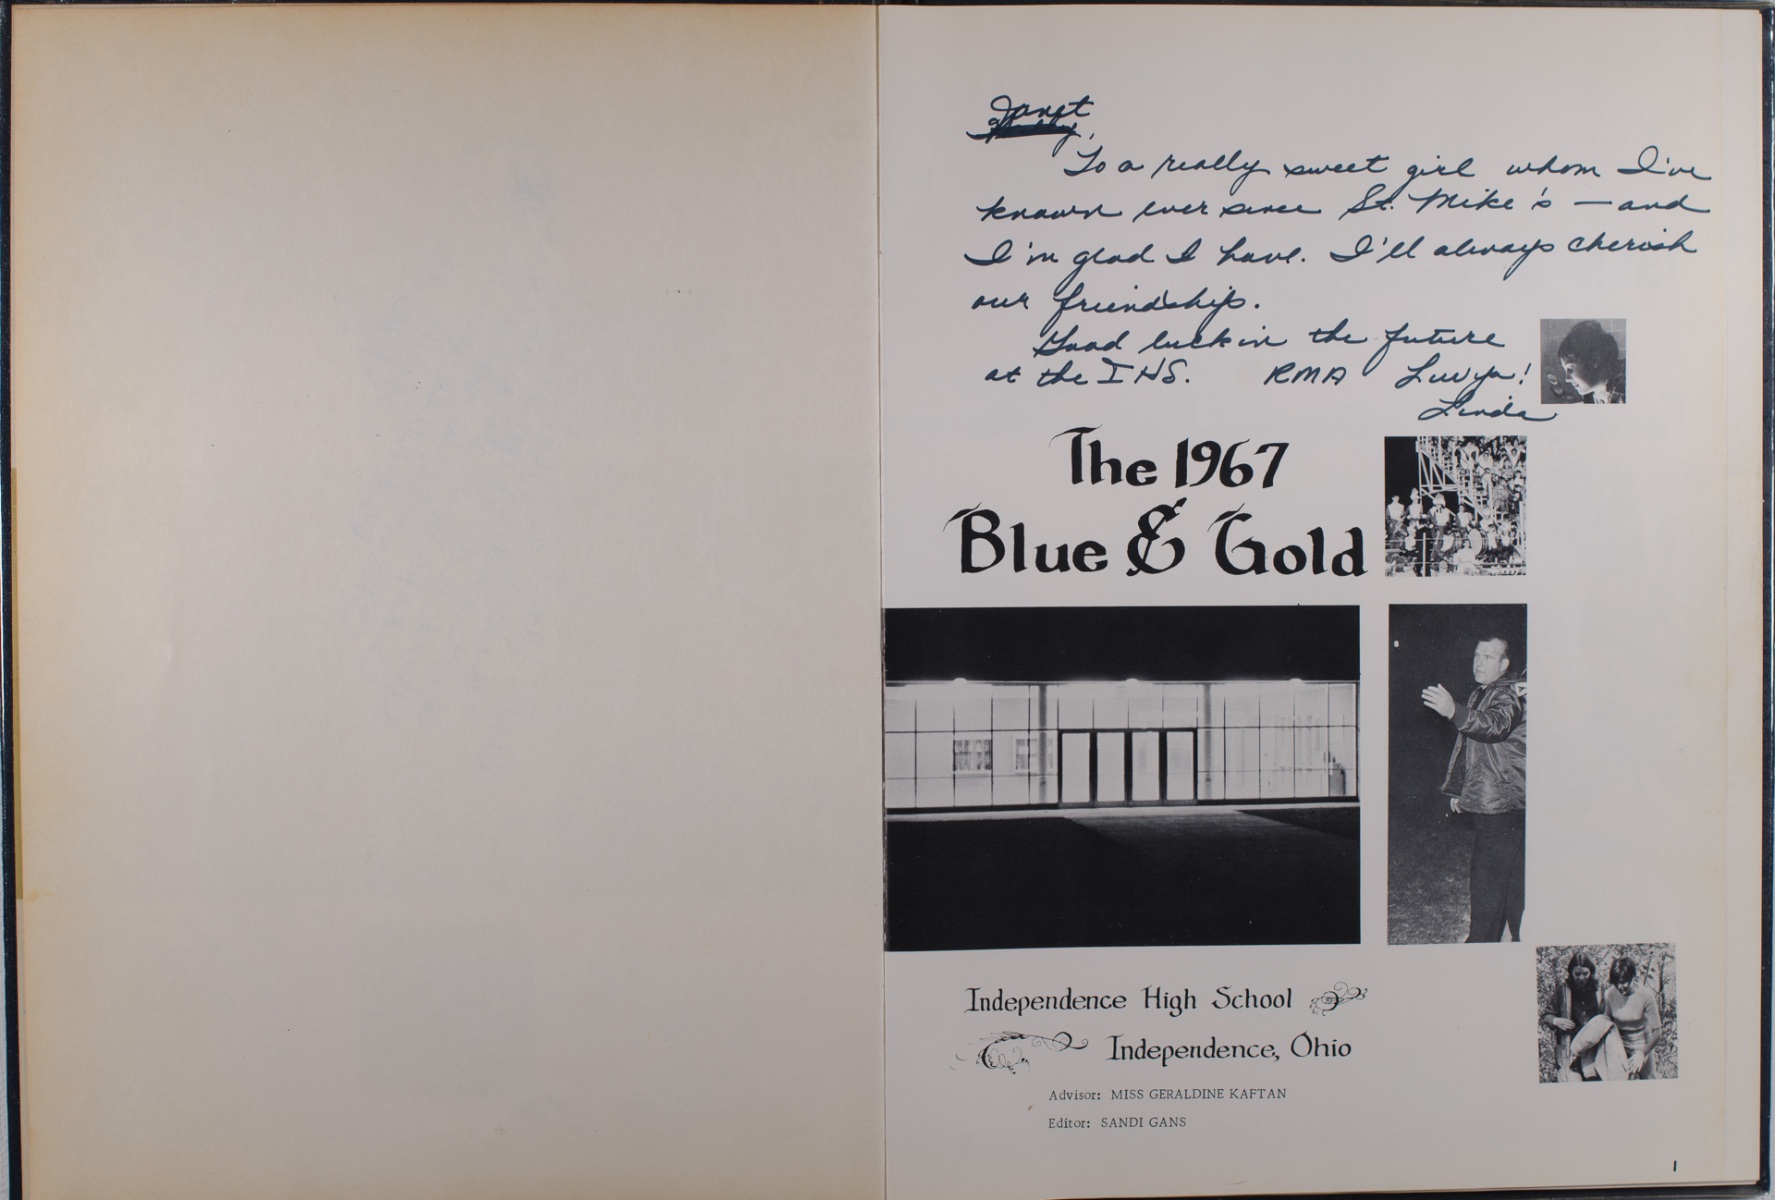 Janet
To a really sweet girl whom I've
known ever since St. Mike's — and
I'm glad I have. I'll always cherish
our friendship.
Good luck in the future
at the IHS. RMA Luvya!
Linda
The 1967
Blue & Gold
Independence High School
Independence, Ohio
Advisor: MISS GERALDINE KAFTAN
Editor: SANDI GANS
1